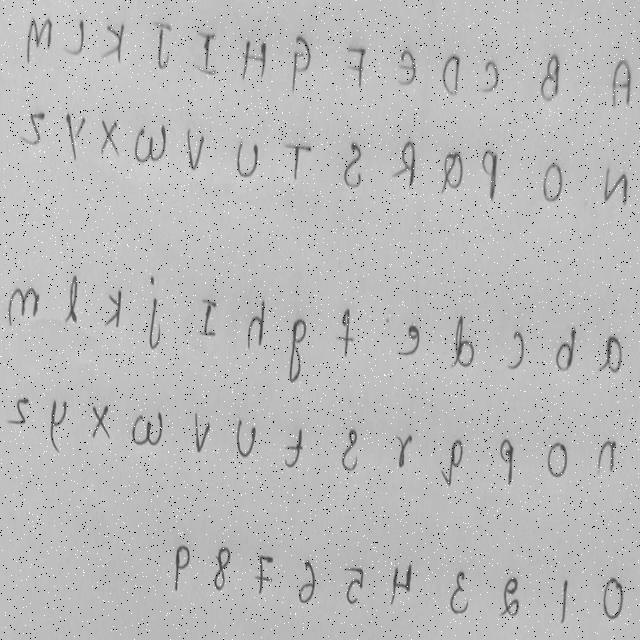 A B C D E F G H I J K L M
N O P Q R S T U V W X Y Z
a b c d e f g h I j k l m
n o p q r s t u v w x y z
0 1 2 3 4 5 6 7 8 9